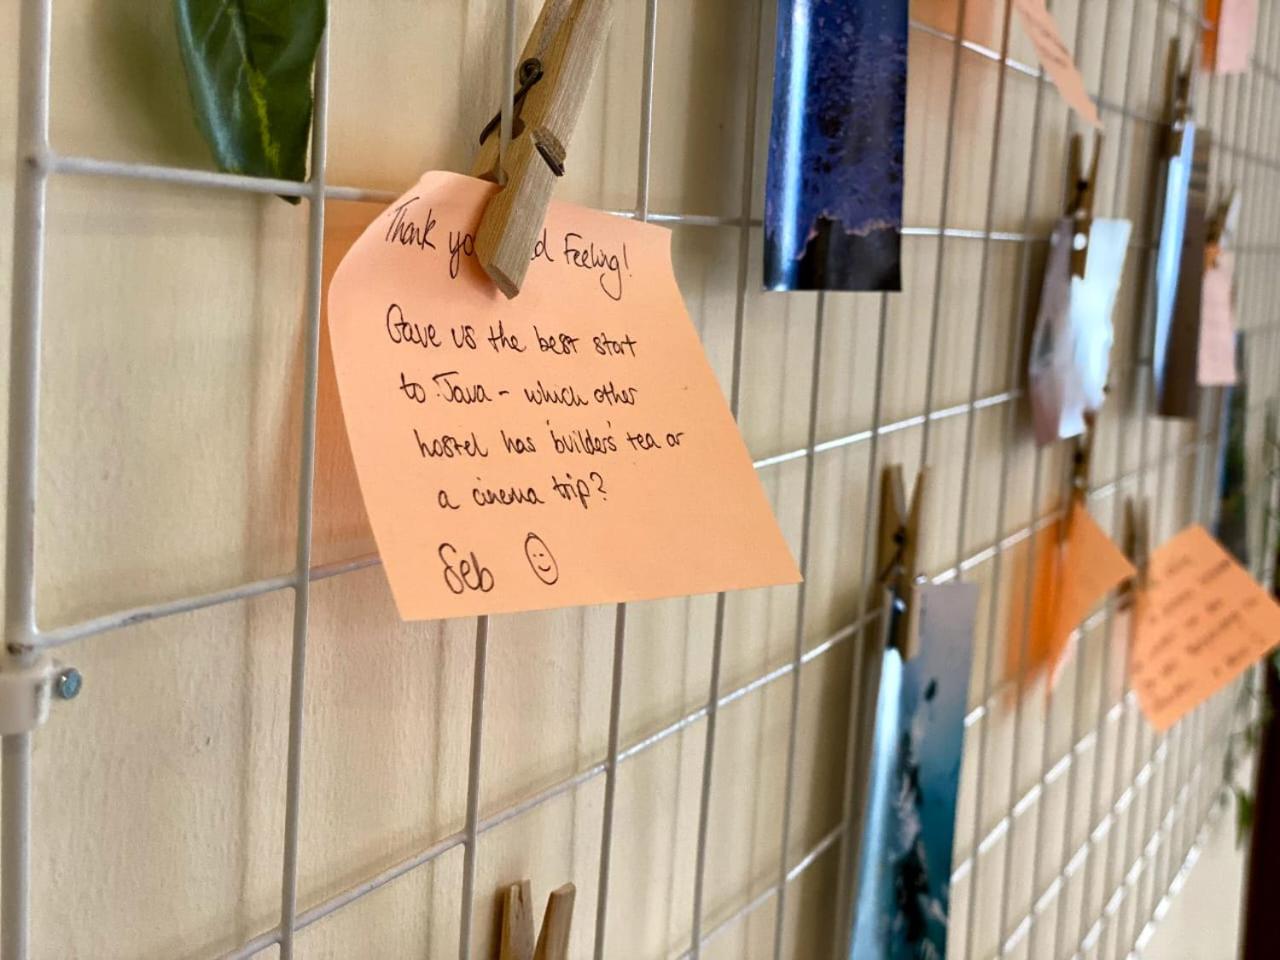 Thank yo d Feeling!
Gave us the best start
to Java - which other
hostel has 'builders' tea or
a cinema trip?
Seb